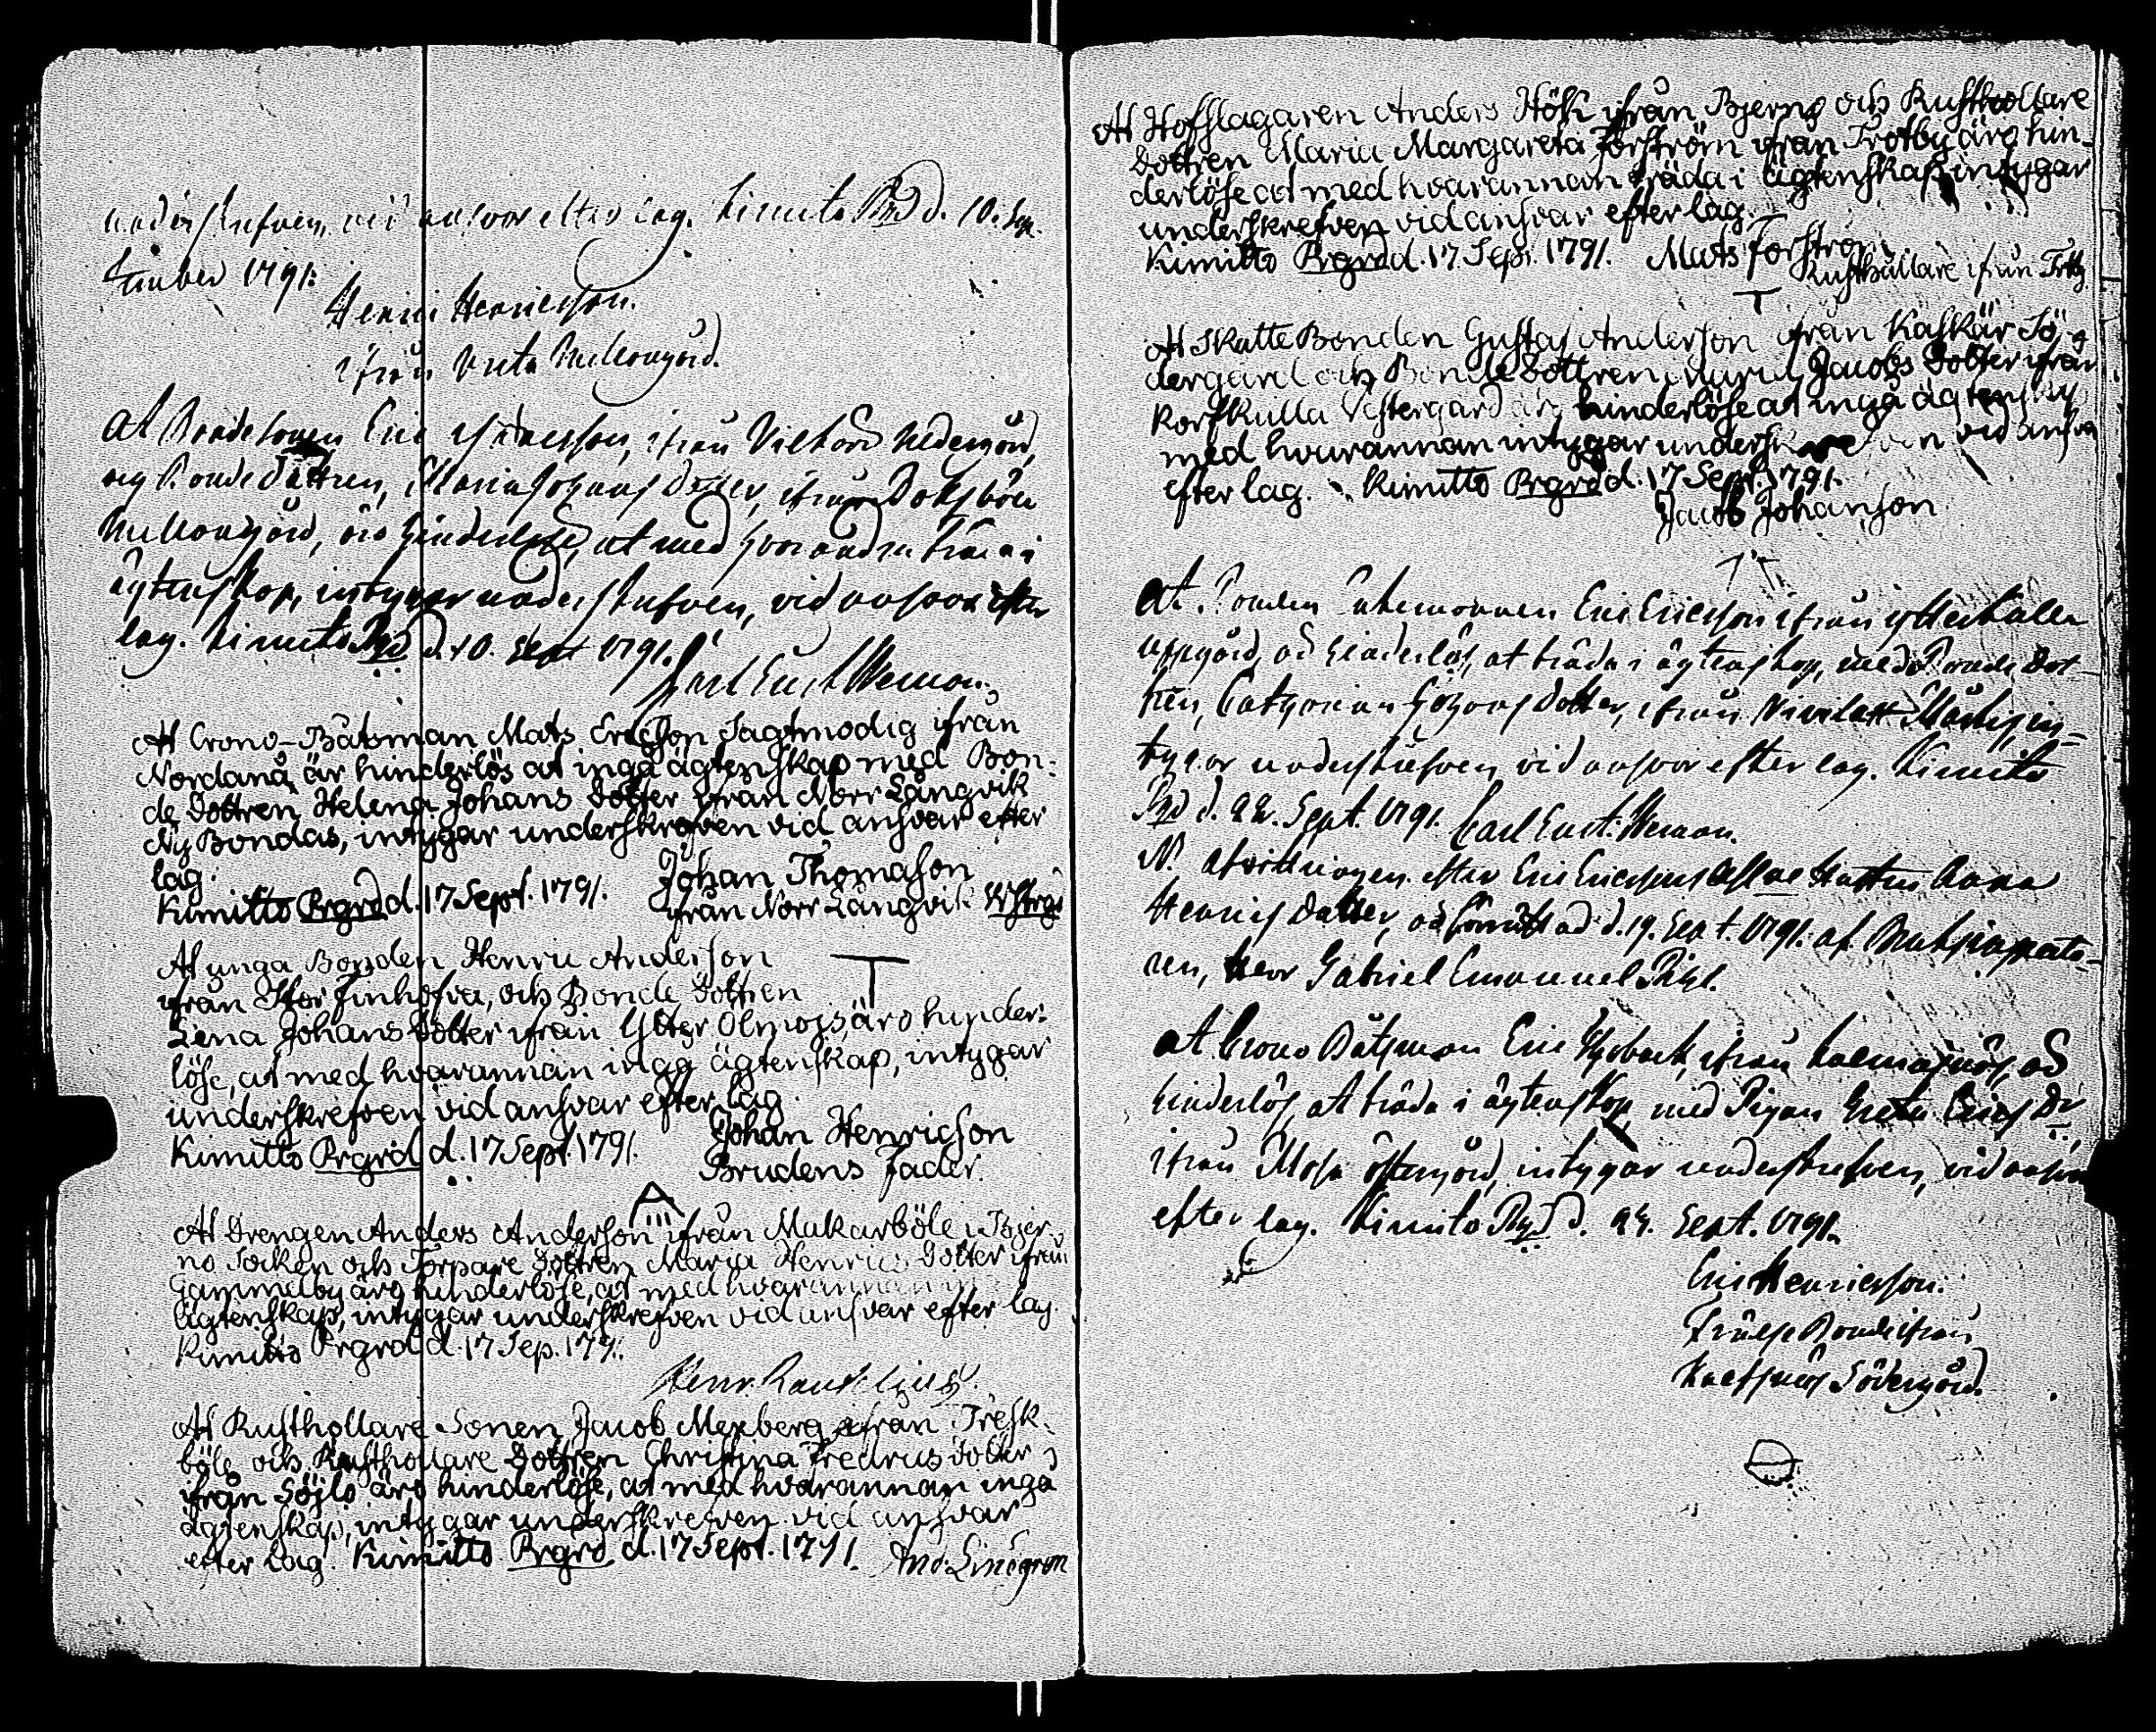 underskrefven, vid ansvar efter lag. Kimito Prgd d. 10. Sep-
tember 1791.
Henric Henricsson.
ifrån Vreta Mellongård.
At Bondesonen Eric ifrån Vilkord Nedergård,
och Bonde Dottren, Maria Johans Dotter, ifrån
Mellongård, äro hinderlöse, at med hvarandra träda i
ägtenskap, intygar underskrefven, vid ansvar efter
lag. Kimito Prgd d. 10. Sept 1791.
Carl Eneman.
At Crono-Båtsman Mats Ericson Sagtmodig ifrån
Nordanå, är hinderlös at ingå ägtenskap med Bon-
de Dottren Helena Johans Dotter ifrån Norr Långvik
Ny Bondas, intygar underskrefven vid ansvar efter
lag.
Kimitto Prgrd d. 17 Sept. 1791. Johan Thomason
ifrån Norr Långvik
At unga Bonden Henric Anderson
ifrån Stor Finhofva, och Bonde Dottren
Lena Johans Dotter ifrån Ytter Ölmos äro hinder-
löse, at med hvarannan ingå ägtenskap, intygar
underskrefven vid ansvar efter lag.
Kimitto Prgrd d. 17 Sept. 1791. Johan Henricson
Brudens Fader.
At Drengen Anders Anderson ifrån Makarböle i Bjer-
no Socken och Torpare Dottren Maria Henrics Dotter ifrån
Gammelby äro hinderlöse, at med hvarannan
ägtenskap, intygar underskrefven vid ansvar efter lag.
Kimitto Prgrd d. 17 Sep. 1791.
Henr.
At Rusthollare Sonen Jacob Mexberg ifrån Tresk-
böle och Rusthollare Dottren Christina Fredrics Dotter
ifrån Söjlo äro hinderlöse, at med hvarannan ingå
ägtenskap, intygar underskrefven vid ansvar
efter lag. Kimitto Prgrd d. 17 Sept. 1791. And: Lindgren
At Hofslagaren Anders Hök ifrån Bjerno och Rusthollare
Dottren Maria Margareta Forström ifrån Trotby äro hin-
derlöse at med hvarannan träda i ägtenskap intygar
underskrefven vid ansvar efter lag.
Kimitto Prgrd d. 17 Sept. 1791. Mats Forström
Rusthållare ifrån
At Skatte Bonden Gustaf Anderson ifrån Kaskär Sö-
dergård och Bonde Dottren Maria Jacobs Dotter ifrån
Korskulla Vestergård äro hinderlöse at ingå ägtenskap
med hvarannan intygar underskrefven vid ansvar
efter lag. Kimitto Prgrd d. 17 Sept. 1791.
Jacob Johanson
At Bonden Enkemannen Eric Ericsson ifrån Ytterkulla
Uppgård, är hinderlös, at träda i ägtenskap, med Bonde Dot-
tren, Catharina Johans Dotter, ifrån in-
tygar underskrefven vid ansvar efter lag. Kimito
Prgd d. 22. Sept. 1791. Carl Eneman.
N. Afvittringen efter Eric Ericssons Aflne Hustru Anna
Henrics Dotter, är förrättad d. 19. Sept. 1791. af
ren, Herr Gabriel Emanuel Pihl.
At Crono Båtsman Eric ifrån är
hinderlös, at träda i ägtenskap, med Pigan Greta Erics Dr
ifrån Mosa Östergård, intygar underskrefven, vid ansvar
efter lag. Kimito Prgd d. 24. Sept. 1791.
Eric Henricsson.
Frälse Bonde ifrån
Södergård.